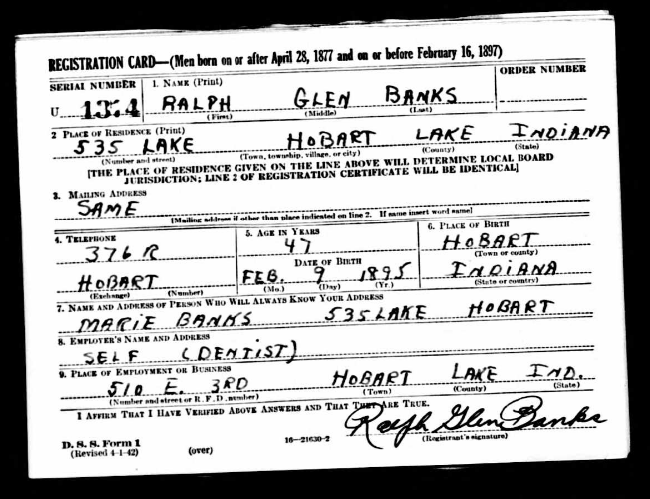 REGISTRATION CARD—(Men born on or after April 28, 1877 and on or before February 16, 1897)
SERIAL NUMBER 1. NAME (Print) ORDER NUMBER
U 1374 RALPH GLEN BANKS
(First) (Middle) (Last)
2 PLACE OF RESIDENCE (Print)
535 LAKE HOBART LAKE INDIANA
(Number and street) (Town, township, village, or city) (County) (State)
[THE PLACE OF RESIDENCE GIVEN ON THE LINE ABOVE WILL DETERMINE LOCAL BOARD
JURISDICTION; LINE 2 OF REGISTRATION CERTIFICATE WILL BE IDENTICAL]
3. MAILING ADDRESS
SAME
[Mailing address if other than place indicated on line 2. If same insert word same]
4. TELEPHONE 5. AGE IN YEARS 6. PLACE OF BIRTH
376 R 47 HOBART
DATE OF BIRTH (Town or county)
HOBART FEB. 9 1895 INDIANA
(Exchange) (Number) (Mo.) (Day) (Yr.) (State or country)
7. NAME AND ADDRESS OF PERSON WHO WILL ALWAYS KNOW YOUR ADDRESS
MARIE BANKS 535 LAKE HOBART
8. EMPLOYER'S NAME AND ADDRESS
SELF (DENTIST)
9. PLACE OF EMPLOYMENT OR BUSINESS
510 E. 3RD HOBART LAKE IND.
(Number and street or R. F. D. number) (Town) (County) (State)
I AFFIRM THAT I HAVE VERIFIED ABOVE ANSWERS AND THAT THEY ARE TRUE.
Ralph Glen Banks
D. S. S. Form 1 16—21630-2 (Registrant's signature)
(Revised 4-1-42) (over)